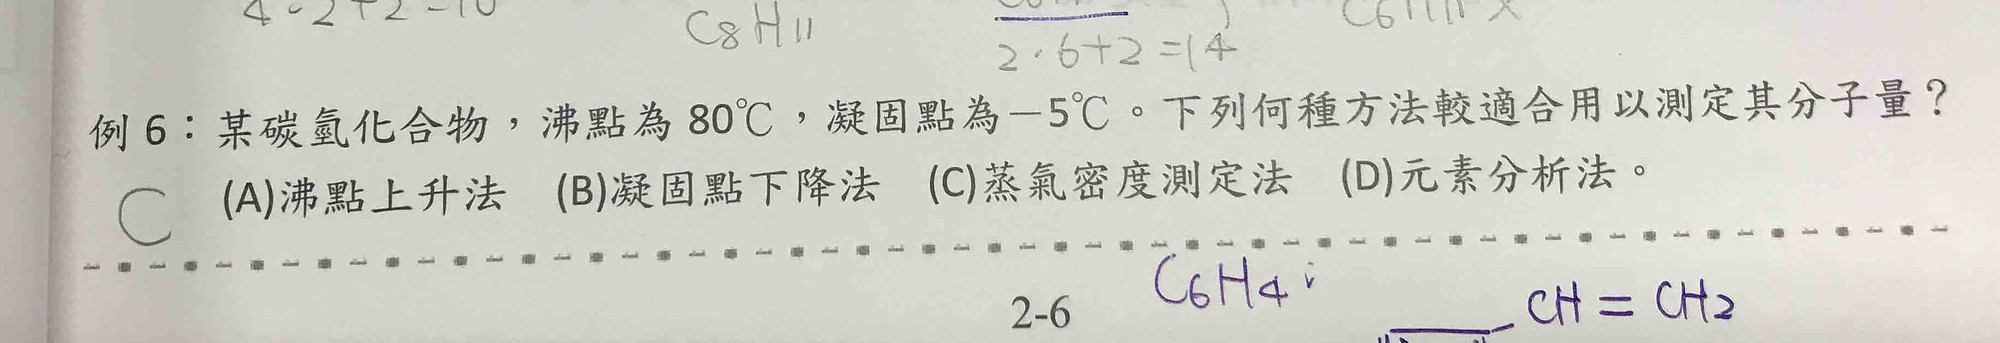 4·2+2=10
C8H11
2·6+2=14
例 6：某碳氫化合物，沸點為 80℃，凝固點為－5℃。下列何種方法較適合用以測定其分子量？
C (A)沸點上升法 (B)凝固點下降法 (C)蒸氣密度測定法 (D)元素分析法。
C6H4
2-6
CH=CH2